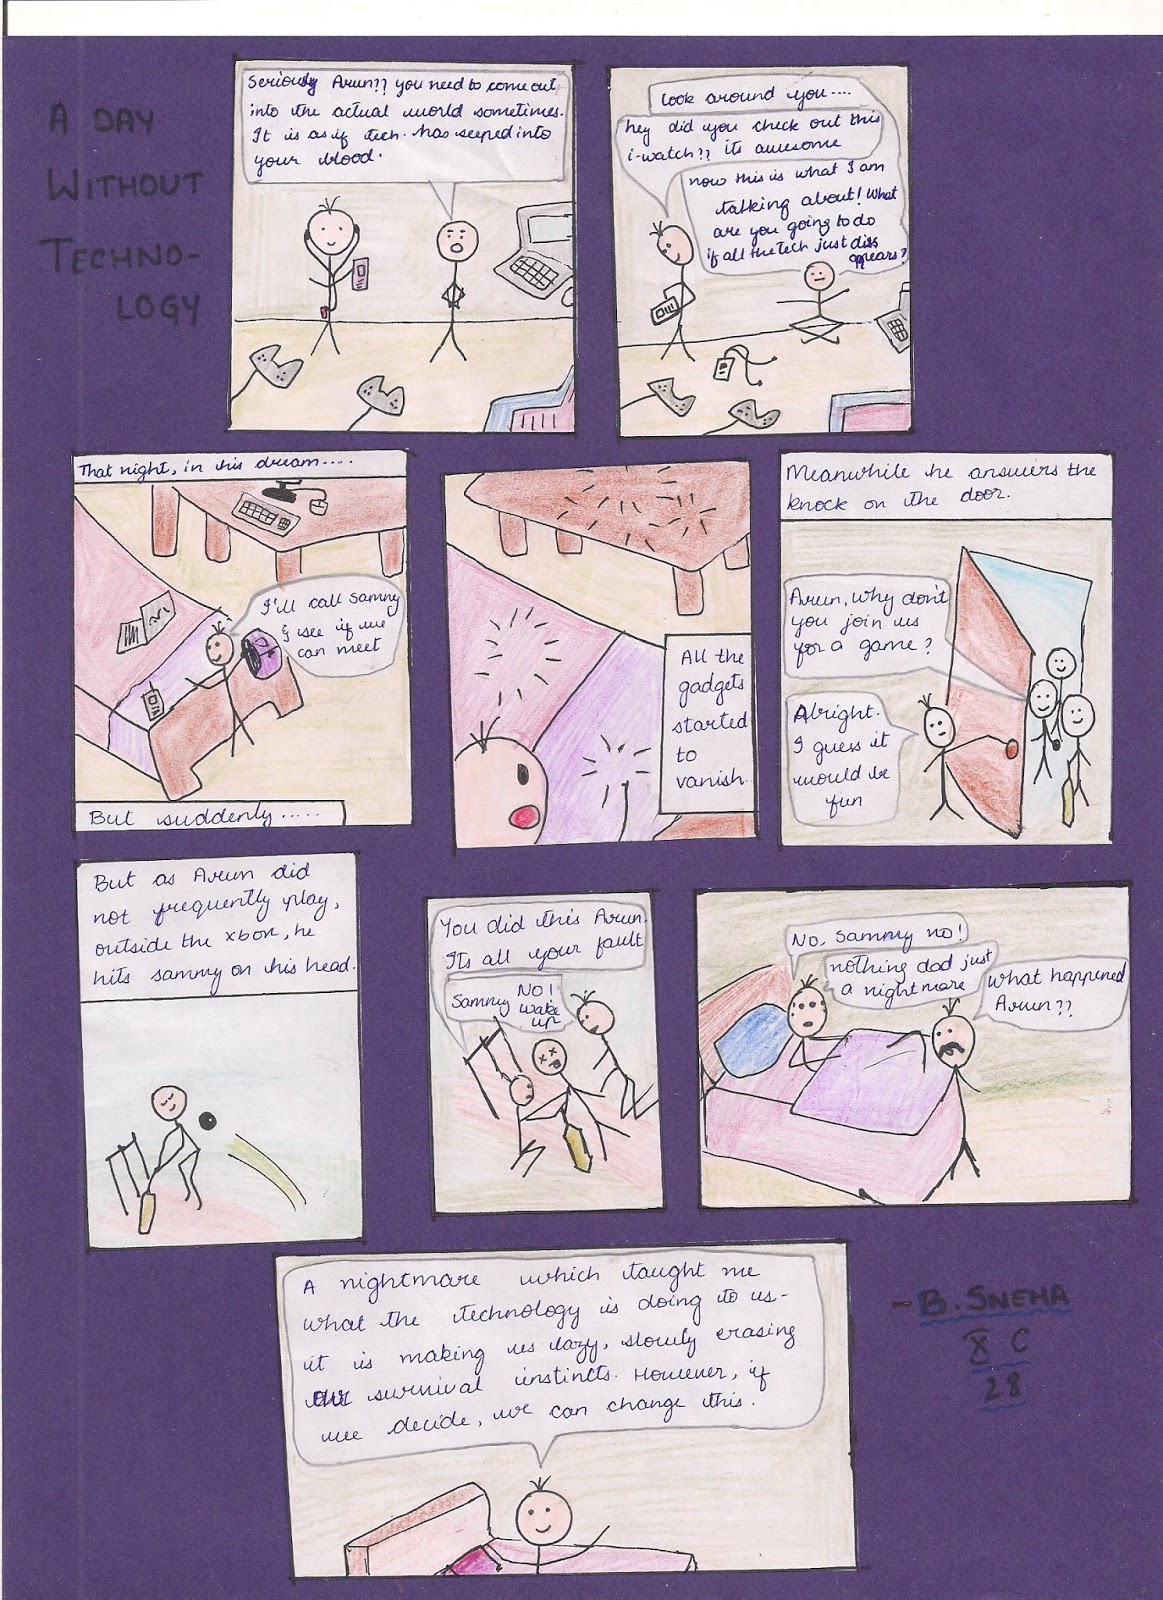 A DAY
WITHOUT
TECHNO-
LOGY
Seriously Arun?? you need to come out
into the actual world sometimes.
It is as if tech. has seeped into
your blood.
Look around you....
hey did you check out this
i-watch?? its awesome
now this is what I am
talking about! What
are you going to do
if all the tech just diss
appears?
That night, in his dream.....
I'll call Sammy
& see if we
can meet
But suddenly.....
All the
gadgets
started
to
vanish.
Meanwhile he answers the
knock on the door.
Arun, why don't
you join us
for a game?
Alright.
I guess it
would be
fun
But as Arun did
not frequently play,
outside the xbox, he
hits sammy on his head.
You did this Arun.
Its all your fault
Sammy NO!
wake
up
No, Sammy no!
nothing dad just
a nightmare
What happened
Arun??
A nightmare which taught me
what the technology is doing to us-
it is making us lazy, slowly erasing
our survival instincts. However, if
we decide, we can change this.
- B. SNEHA
X C
28